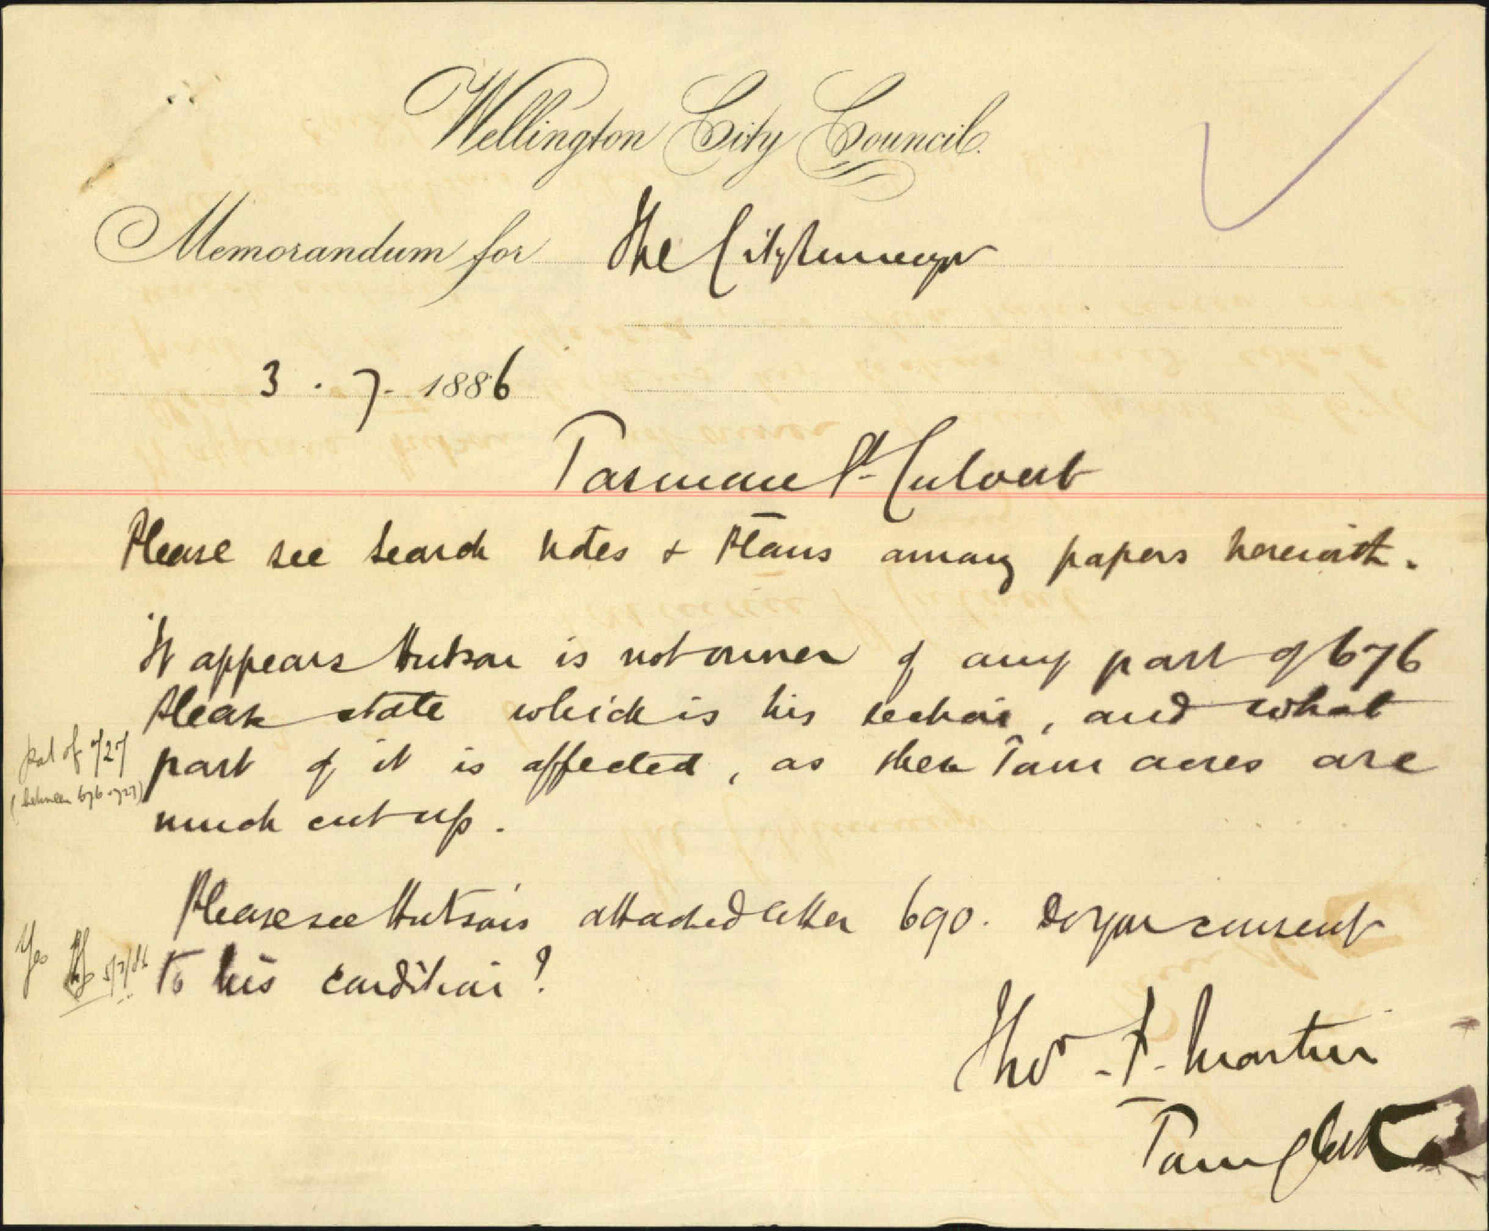 Wellington City Council.
Memorandum for The City Surveyor
3 . 7 - 1886
Tasman St Culvert
Please see Search Notes & Plans among papers herewith.
It appears Hutson is not owner of any part of 676
Please state which is his section, and what
part of 727
(between 676 & 727)
part of it is affected, as these Town acres are
much cut up.
Please see Hutson's attached letter 690. Do you consent
Yes
5/7/86
to his condition?
Thos. F. Martin
Town Clerk